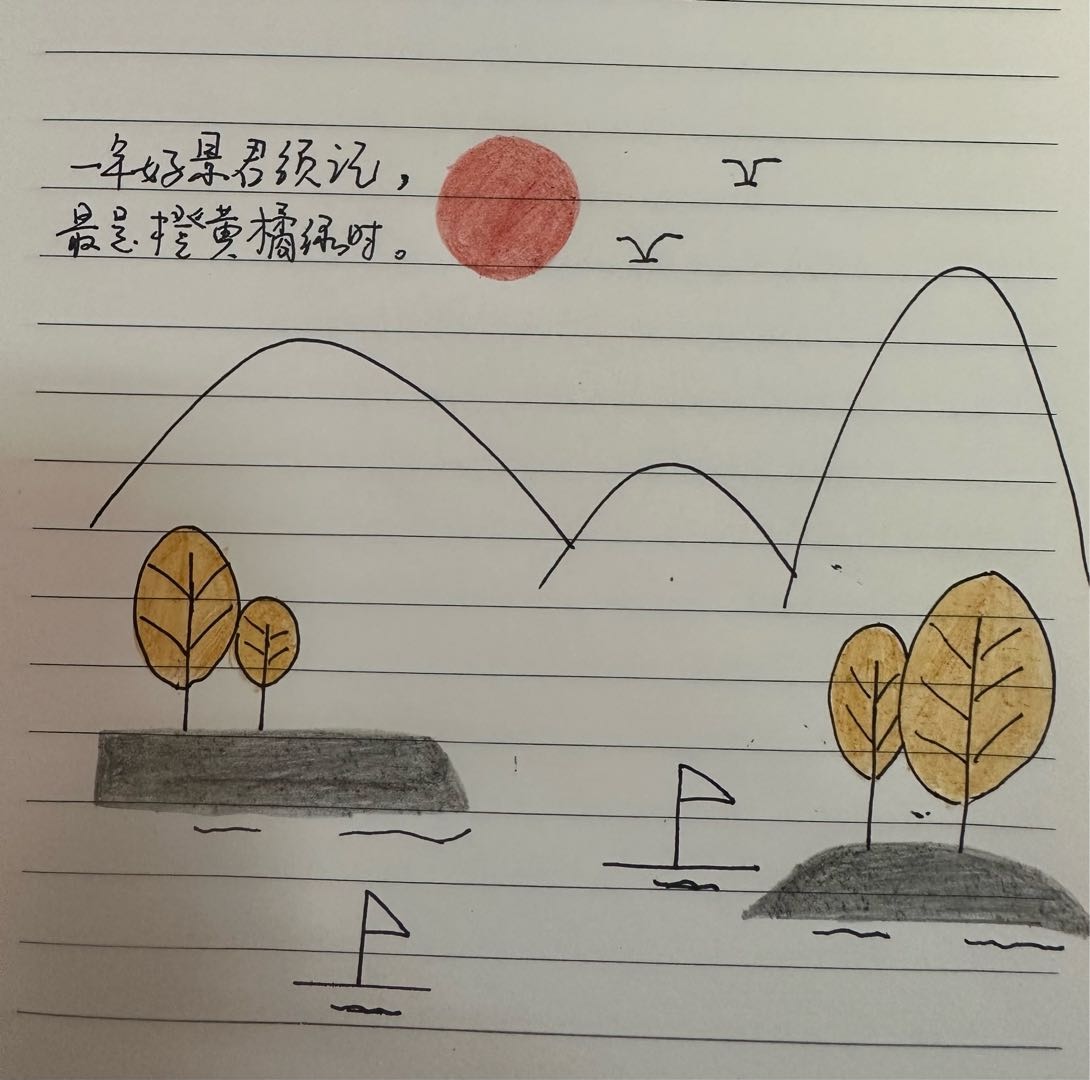 一年好景君须记，
最是橙黄橘绿时。